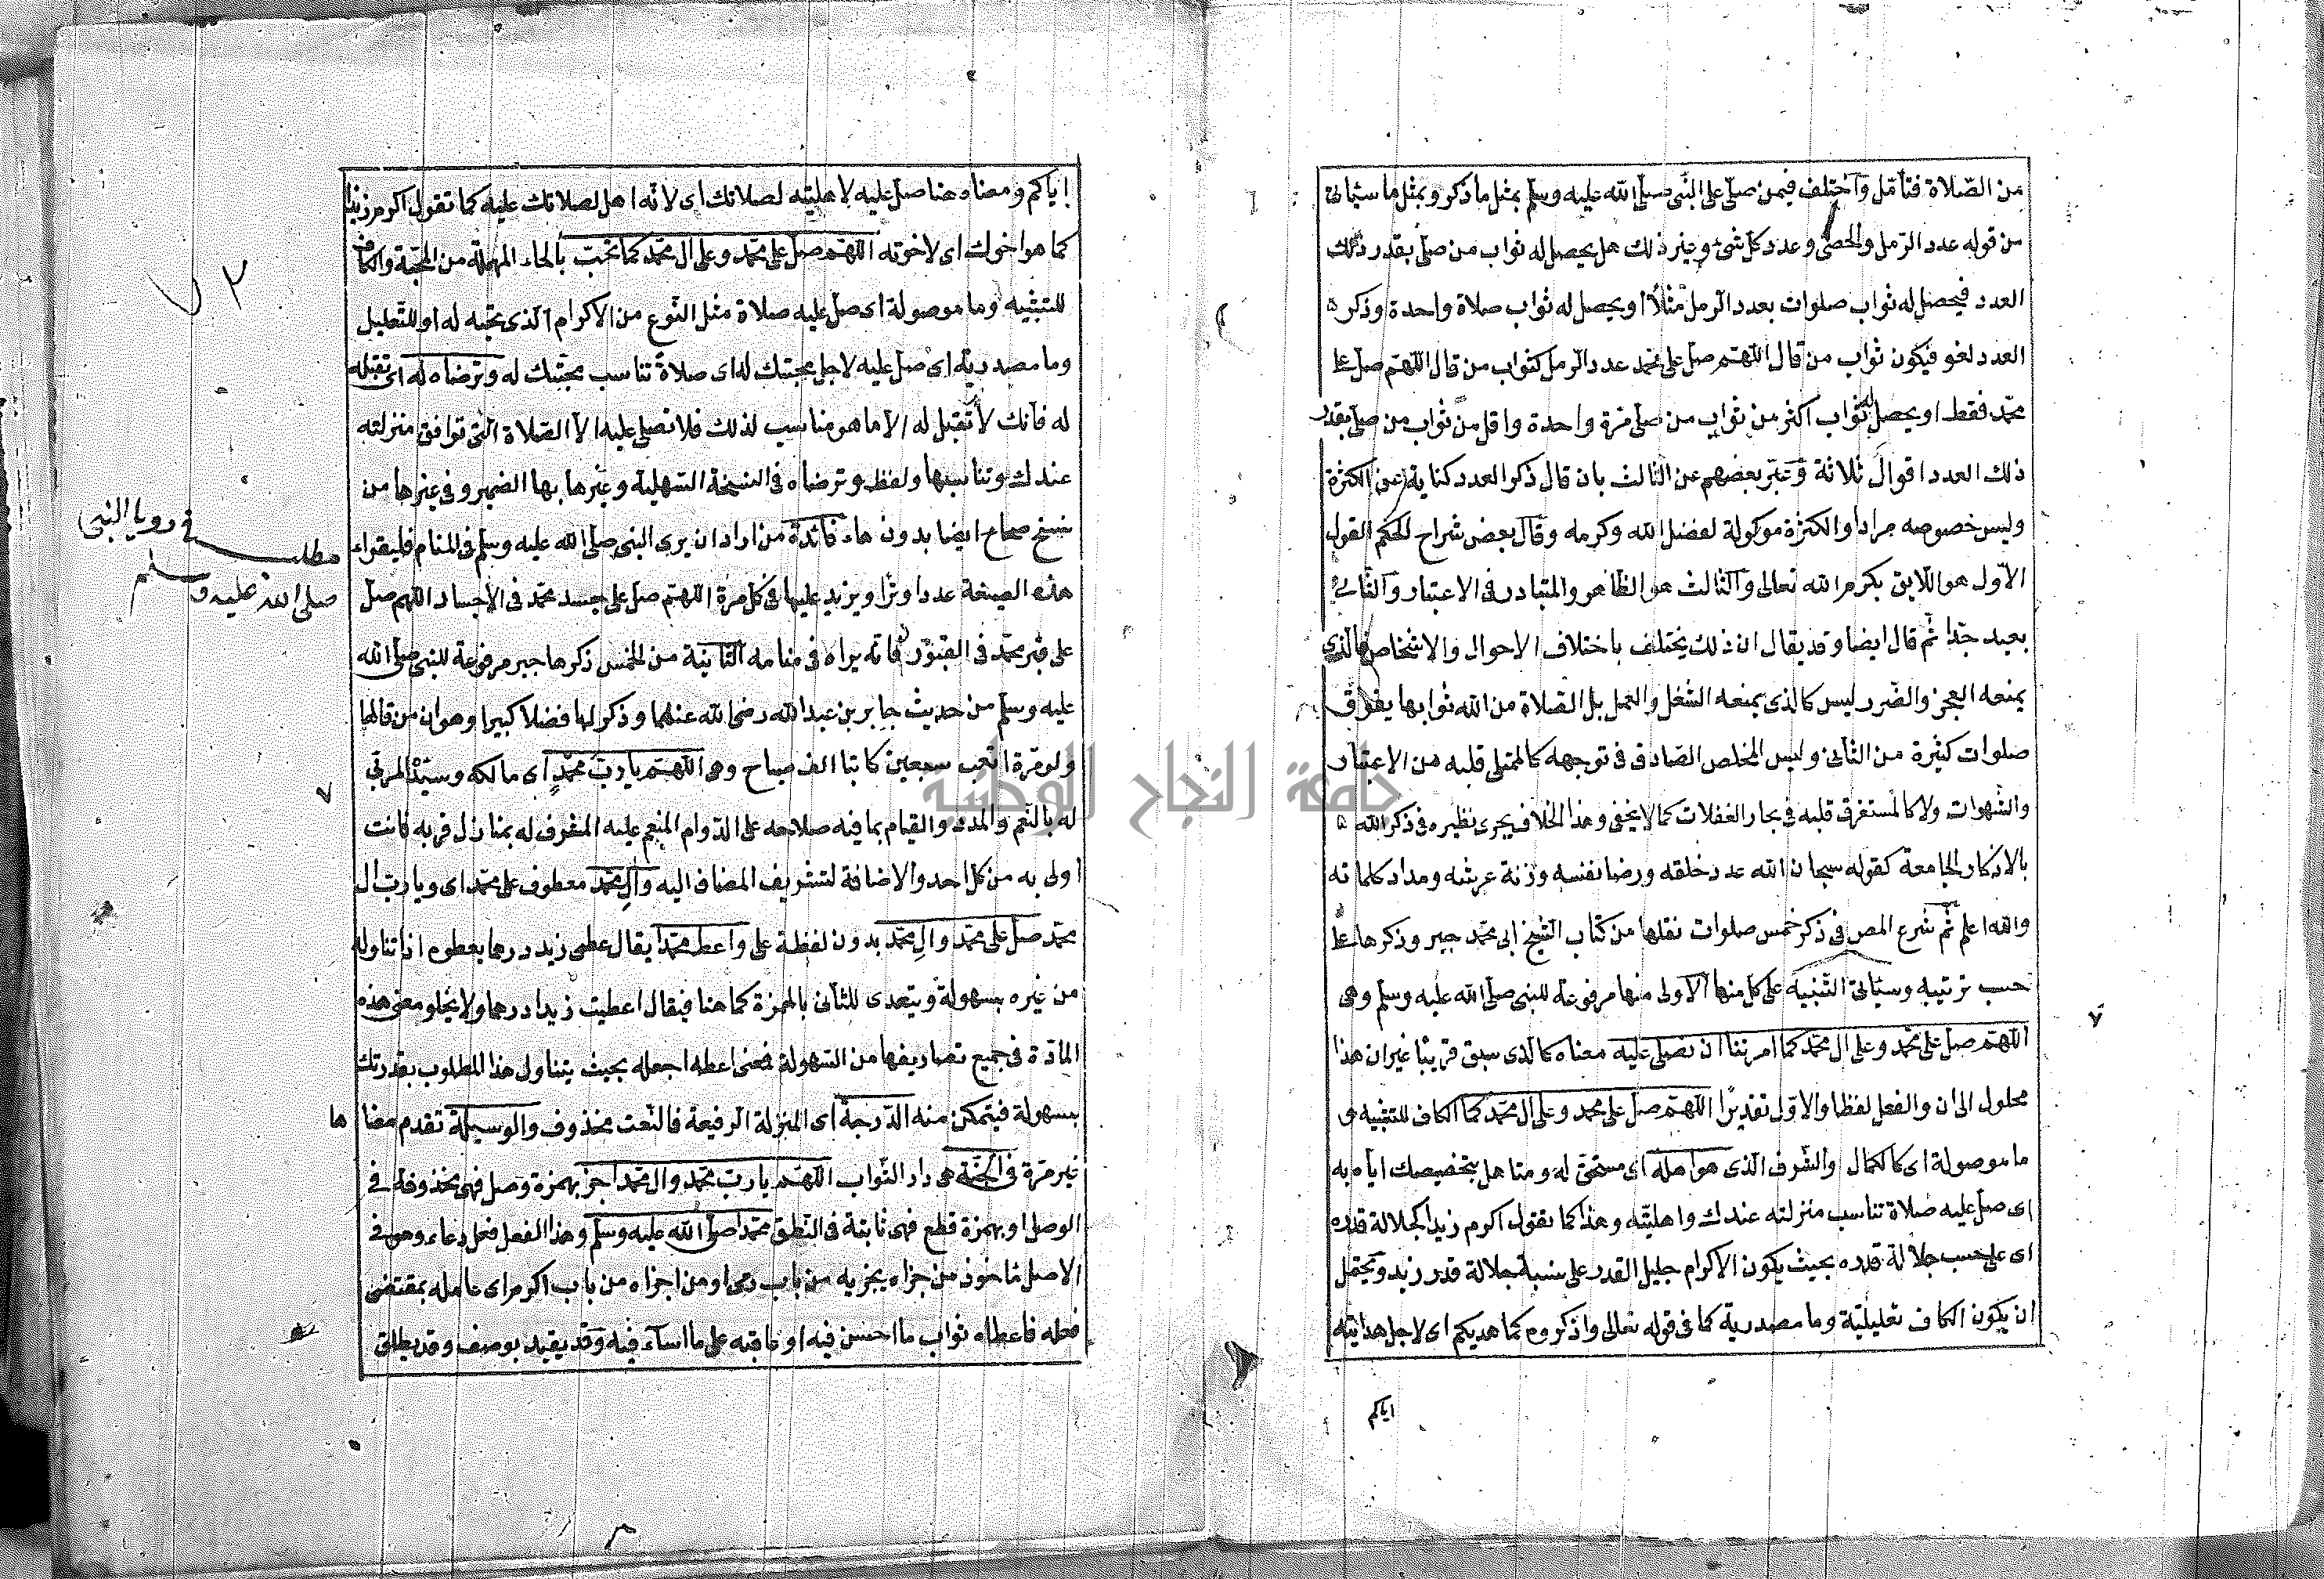 من الصّلاة فتأمّل واختلف فيمن صلّى على النّبى صلّى الله عليه وسلّم بمثل ما ذكر وبمثل ما سيأتى
من قوله عدد الرّمل والحصى وعدد كلّ شئ وغير ذلك هل يحصل له ثواب من صلّى بقدر ذلك
العدد فيحصل له ثواب صلوات بعدد الرّمل مثلاً او يحصل له ثواب صلاة واحدة وذكر
العدد لغو فيكون ثواب من قال اللّهمّ صلّ على محمّد عدد الرّمل كثواب من قال اللّهمّ صلّ على
محمّد فقط او يحصل له ثواب اكثر من ثواب من صلّى مرة واحدة واقل من ثواب من صلّى بقدر
ذلك العدد اقوال ثلاثة وعبّر بعضهم عن الثالث بان قال ذكر العدد كناية عن الكثرة
وليس خصوصه مرادا والكثرة موكولة لفضل الله وكرمه وقال بعض شراح الحكم القول
الاول هو اللايق بكرم الله تعالى والثالث هو الظاهر والمتبادر فى الاعتبار والثانى
بعيد جدّا ثم قال ايضا وقد يقال ان ذلك يختلف باختلاف الاحوال والاشخاص فالذى
يمنعه العجز والضّرر ليس كالذى يمنعه الشغل والعمل بل الصّلاة من الله ثوابها يفوق
صلوات كثيرة من الثانى وليس المخلص الصّادق فى توجهه كالممتلى قلبه من الاغيار
والشّهوات ولا كالمستغرق قلبه فى بحار الغفلات كما لا يخفى وهذا الخلاف يجرى نظيره فى ذكر الله
بالاذكار الجامعة كقوله سبحان الله عدد خلقه ورضا نفسه وزنة عرشه ومداد كلماته
والله اعلم ثم شرع المص فى ذكر خمس صلوات نقلها من كتاب الشيخ ابى محمّد جبر وذكرها على
حسب ترتيبه وسيّاتى التّنبيه على كل منها الاولى منها مرفوعة للنبى صلّى الله عليه وسلّم وهى
اللّهمّ صلّ على محمّد وعلى ال محمّد كما امرتنا ان نصلّى عليه معناه كالذى سبق قريبا غير ان هذا
محلول الى ان والفعل لفظا والاوّل تقديرًا اللّهمّ صلّ على محمد وعلى ال محمّد كما الكاف للتشبيه و
ما موصولة اى كالكمال والشّرف الذى هو اهله اى مستحق له ومتاهل بتخصيصك ايّاه به
اى صلّ عليه صلاة تناسب منزلته عندك واهليّته وهذا كما يقول اكرم زيدا لجلالة قدره
اى على حسب جلالة قدره بحيث يكون الاكرام جليل القدر على نسبة جلالة قدر زيد ويحتمل
ان يكون الكاف تعليليّة وما مصدرية كما فى قوله تعالى واذكروه كما هديكم اى لاجل هدايته
اياكم
اياكم ومعناه هنا صلّ عليه لاهليته لصلاتك اى لانّه اهل لصلاتك عليه كما تقول اكرم زيدا
كما هو اخوك اى لاخوته اللّهمّ صلّ على محمّد وعلى ال محمّد كما تحبّ بالحاء المهملة من المحبّة والكاف
للتشبيه وما موصولة اى صل عليه صلاة مثل النّوع من الاكرام الّذى تحبّه له او للتّعليل
وما مصدريّة اى صلّ عليه لاجل محبّتك له اى صلاة تناسب محبّتك له وترضاه له اى تقبله
له فانك لا تقبل له الا ما هو مناسب لذلك فلا تصلى عليه الا الصّلاة الّتى توافق منزلته
عندك وتناسبها ولفظ وترضاه فى النسخة السّهلية وغيرها بها الضمير وفى غيرها من
نسخ صحاح ايضا بدون هاء فائدة من اراد ان يرى النبى صلى الله عليه وسلّم فى المنام فليقراء
هذه الصيغة عددا وترا ويزيد عليها فى كل مرة اللّهمّ صل على جسد محمّد فى الاجساد اللهم صل
على قبر محمّد فى القبور فانّه يراه فى منامه الثانية من الخمس ذكرها جبر مرفوعة للنبى صلّى الله
عليه وسلم من حديث جابر بن عبد الله رضى الله عنهما وذكر لها فضلا كبيرا وهو ان من قالها
ولو مرّة اتعب سبعين كاتبا الف صباح وهى اللّهمّ يا ربّ محمّد اى مالكه وسيّده المربى
له بالنّعم والمدد والقيام بما فيه صلاحه على الدّوام المنعم عليه المعرف له بمنازل قربه فانت
اولى به من كل احد والاضافة لتشريف المضاف اليه وال محمّد معطوف على محمّد اى ويا ربّ ال
محمّد صلّ على محمّد وال محمّد بدون لفظة على واعط محمّدا يقال عطى زيد درهما يعطوه اذا تناوله
من غيره بسهولة ويتعدى للثانى بالهمزة كما هنا فيقال اعطيت زيدا درهما ولا يخلو معنى هذه
المادّة فى جميع تصاريفها من السّهولة فمعنى اعطه اجعله بحيث يتناول هذا المطلوب بقدرتك
بسهولة فيتمكن منه الدّرجة اى المنزلة الرفيعة فالنّعت محذوف والوسيلة تقدم معناها
غير مرّة فى الجنّة هى دار الثواب اللّهمّ يا ربّ محمّد وال محمّد اجز بهمزة وصل فهى محذوفة فى
الوصل او بهمزة قطع فهى ثابتة فى النّطق محمّدا صلّى الله عليه وسلّم وهذا الفعل فعل دعاء وهو فى
الاصل ماخوذ من جزاه يجزيه من باب رمى او من اجزاه من باب اكرم اى عامله بمقتضى
فعله فاعطاه ثواب ما احسن فيه او عاقبه على ما اساء فيه وقد يقيد بوصف وقد يطلق
٧٢
مطلب فى رويا النبى
صلى الله عليه وسلم
جامعة النجاح الوطنية